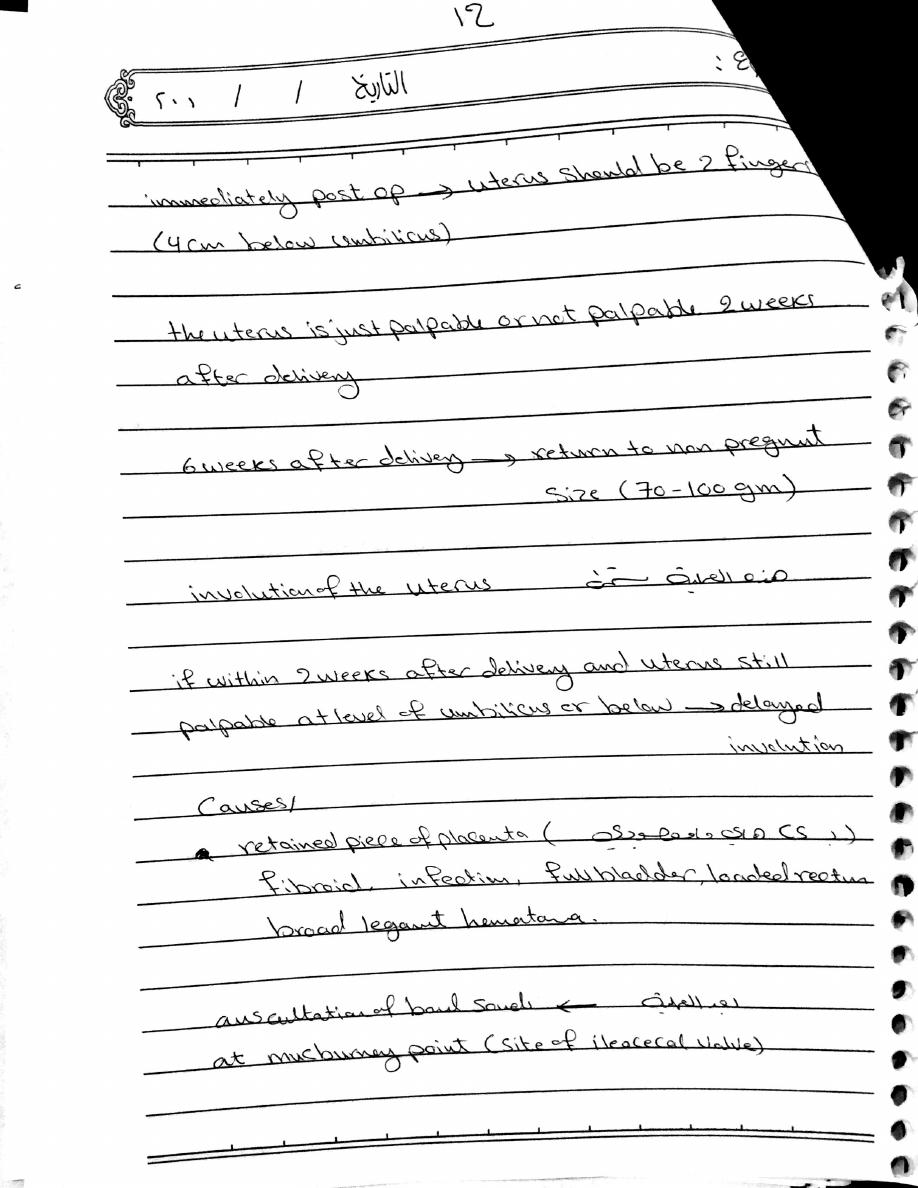 12
التاريخ / / ٢٠١
immediately post op → uterus should be 2 fingers
(4cm below umbilicus)
the uterus is just palpable or not palpable 2 weeks
after delivery
6 weeks after delivery → return to non pregnut
size (70-100 gm)
involution of the uterus
if within 2 weeks after delivery and uterus still
palpable at level of umbilicus or below → delayed
involution
Causes/
retained piece of placenta ( CS )
fibroid, infection, full bladder, loaded rectum
broad legamt hematoma.
auscultation of bowl sounds ←
at mucburney point (site of ileacecal valve)